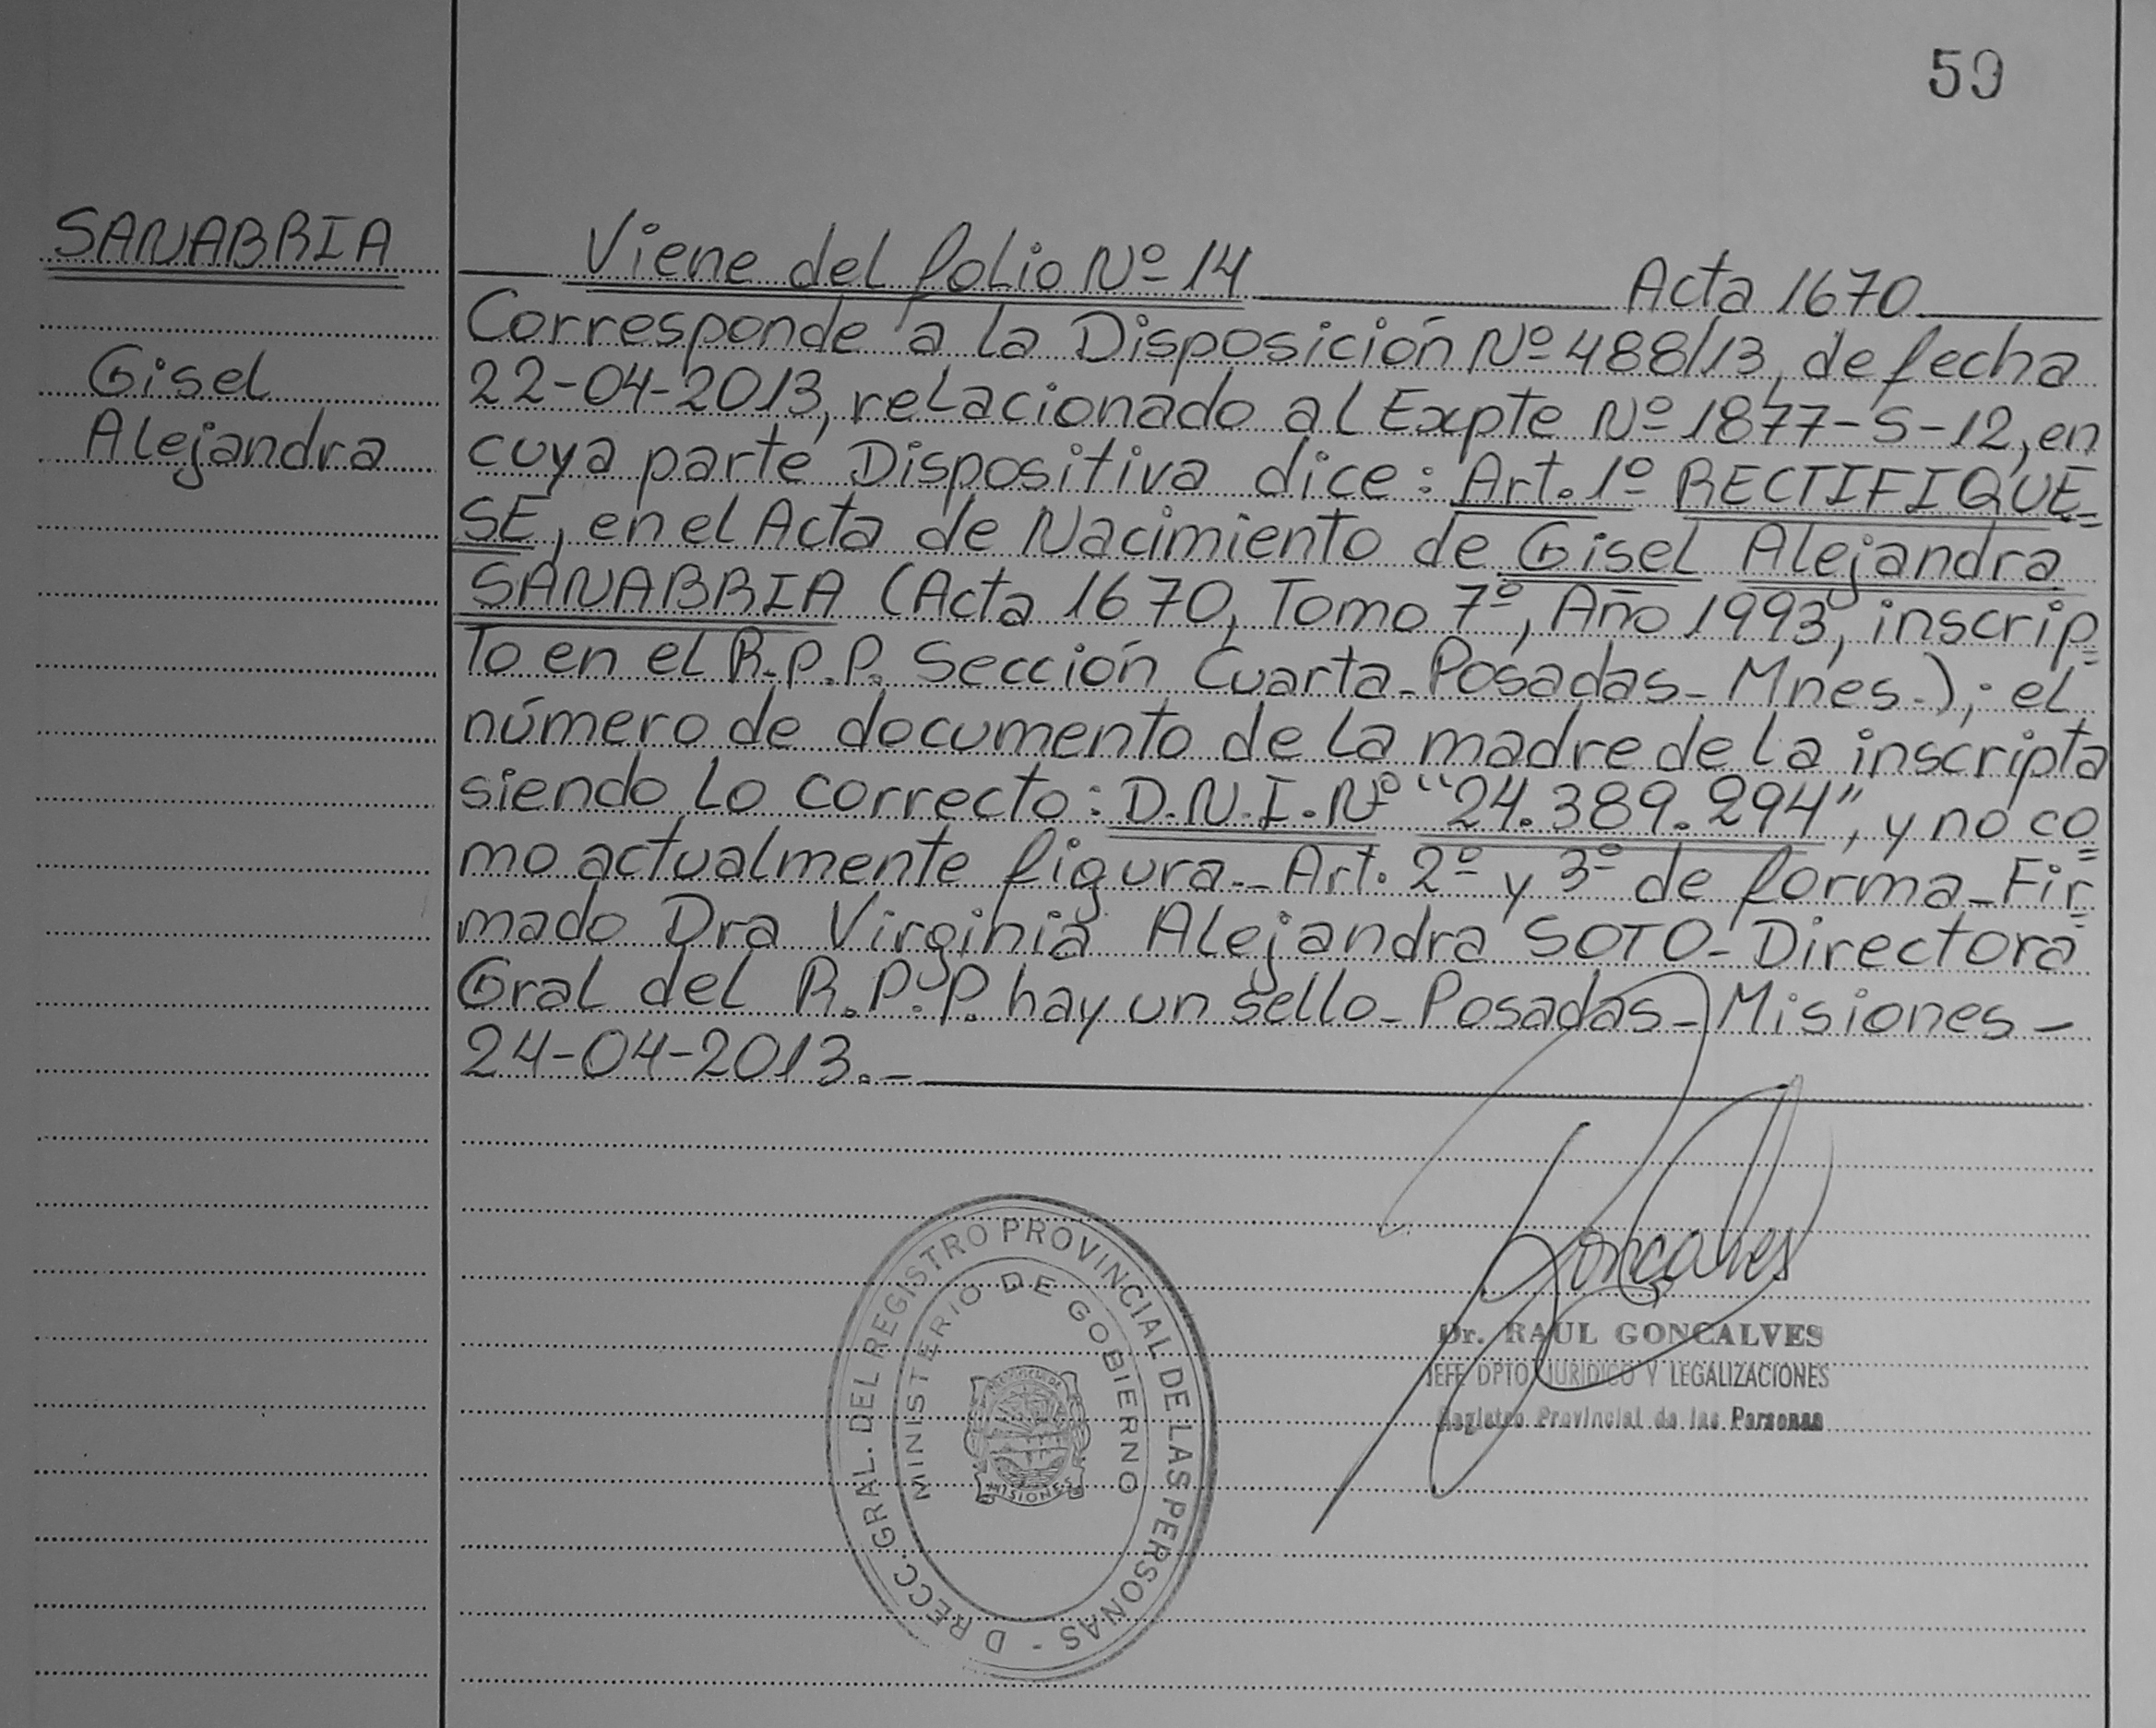 59
SANABRIA
Gisel
Alejandra
Viene del folio Nº 14 Acta 1670
Corresponde a la Disposición Nº 488/13, de fecha
22-04-2013, relacionado al Expte Nº 1877-S-12, en
cuya parte Dispositiva dice: Art. 1º RECTIFIQUE=
SE, en el Acta de Nacimiento de Gisel Alejandra
SANABRIA (Acta 1670, Tomo 7º, Año 1993, inscrip=
to en el R.P.P. Sección Cuarta-Posadas-Mnes.); el
número de documento de la madre de la inscripta
siendo lo correcto: D.N.I. Nº "24.389.294", y no co=
mo actualmente figura.- Art. 2º y 3º de forma-Fir=
mado Dra Virginia Alejandra SOTO-Directora
Gral del R.P.P. hay un sello-Posadas-Misiones-
24-04-2013.-
Goncalves
Dr. RAUL GONCALVES
JEFE DPTO JURIDICO Y LEGALIZACIONES
Registro Provincial de las Personas
D RECC. GRAL. DEL REGISTRO PROVINCIAL DE LAS PERSONAS -
MINISTERIO DE GOBIERNO
MISIONES